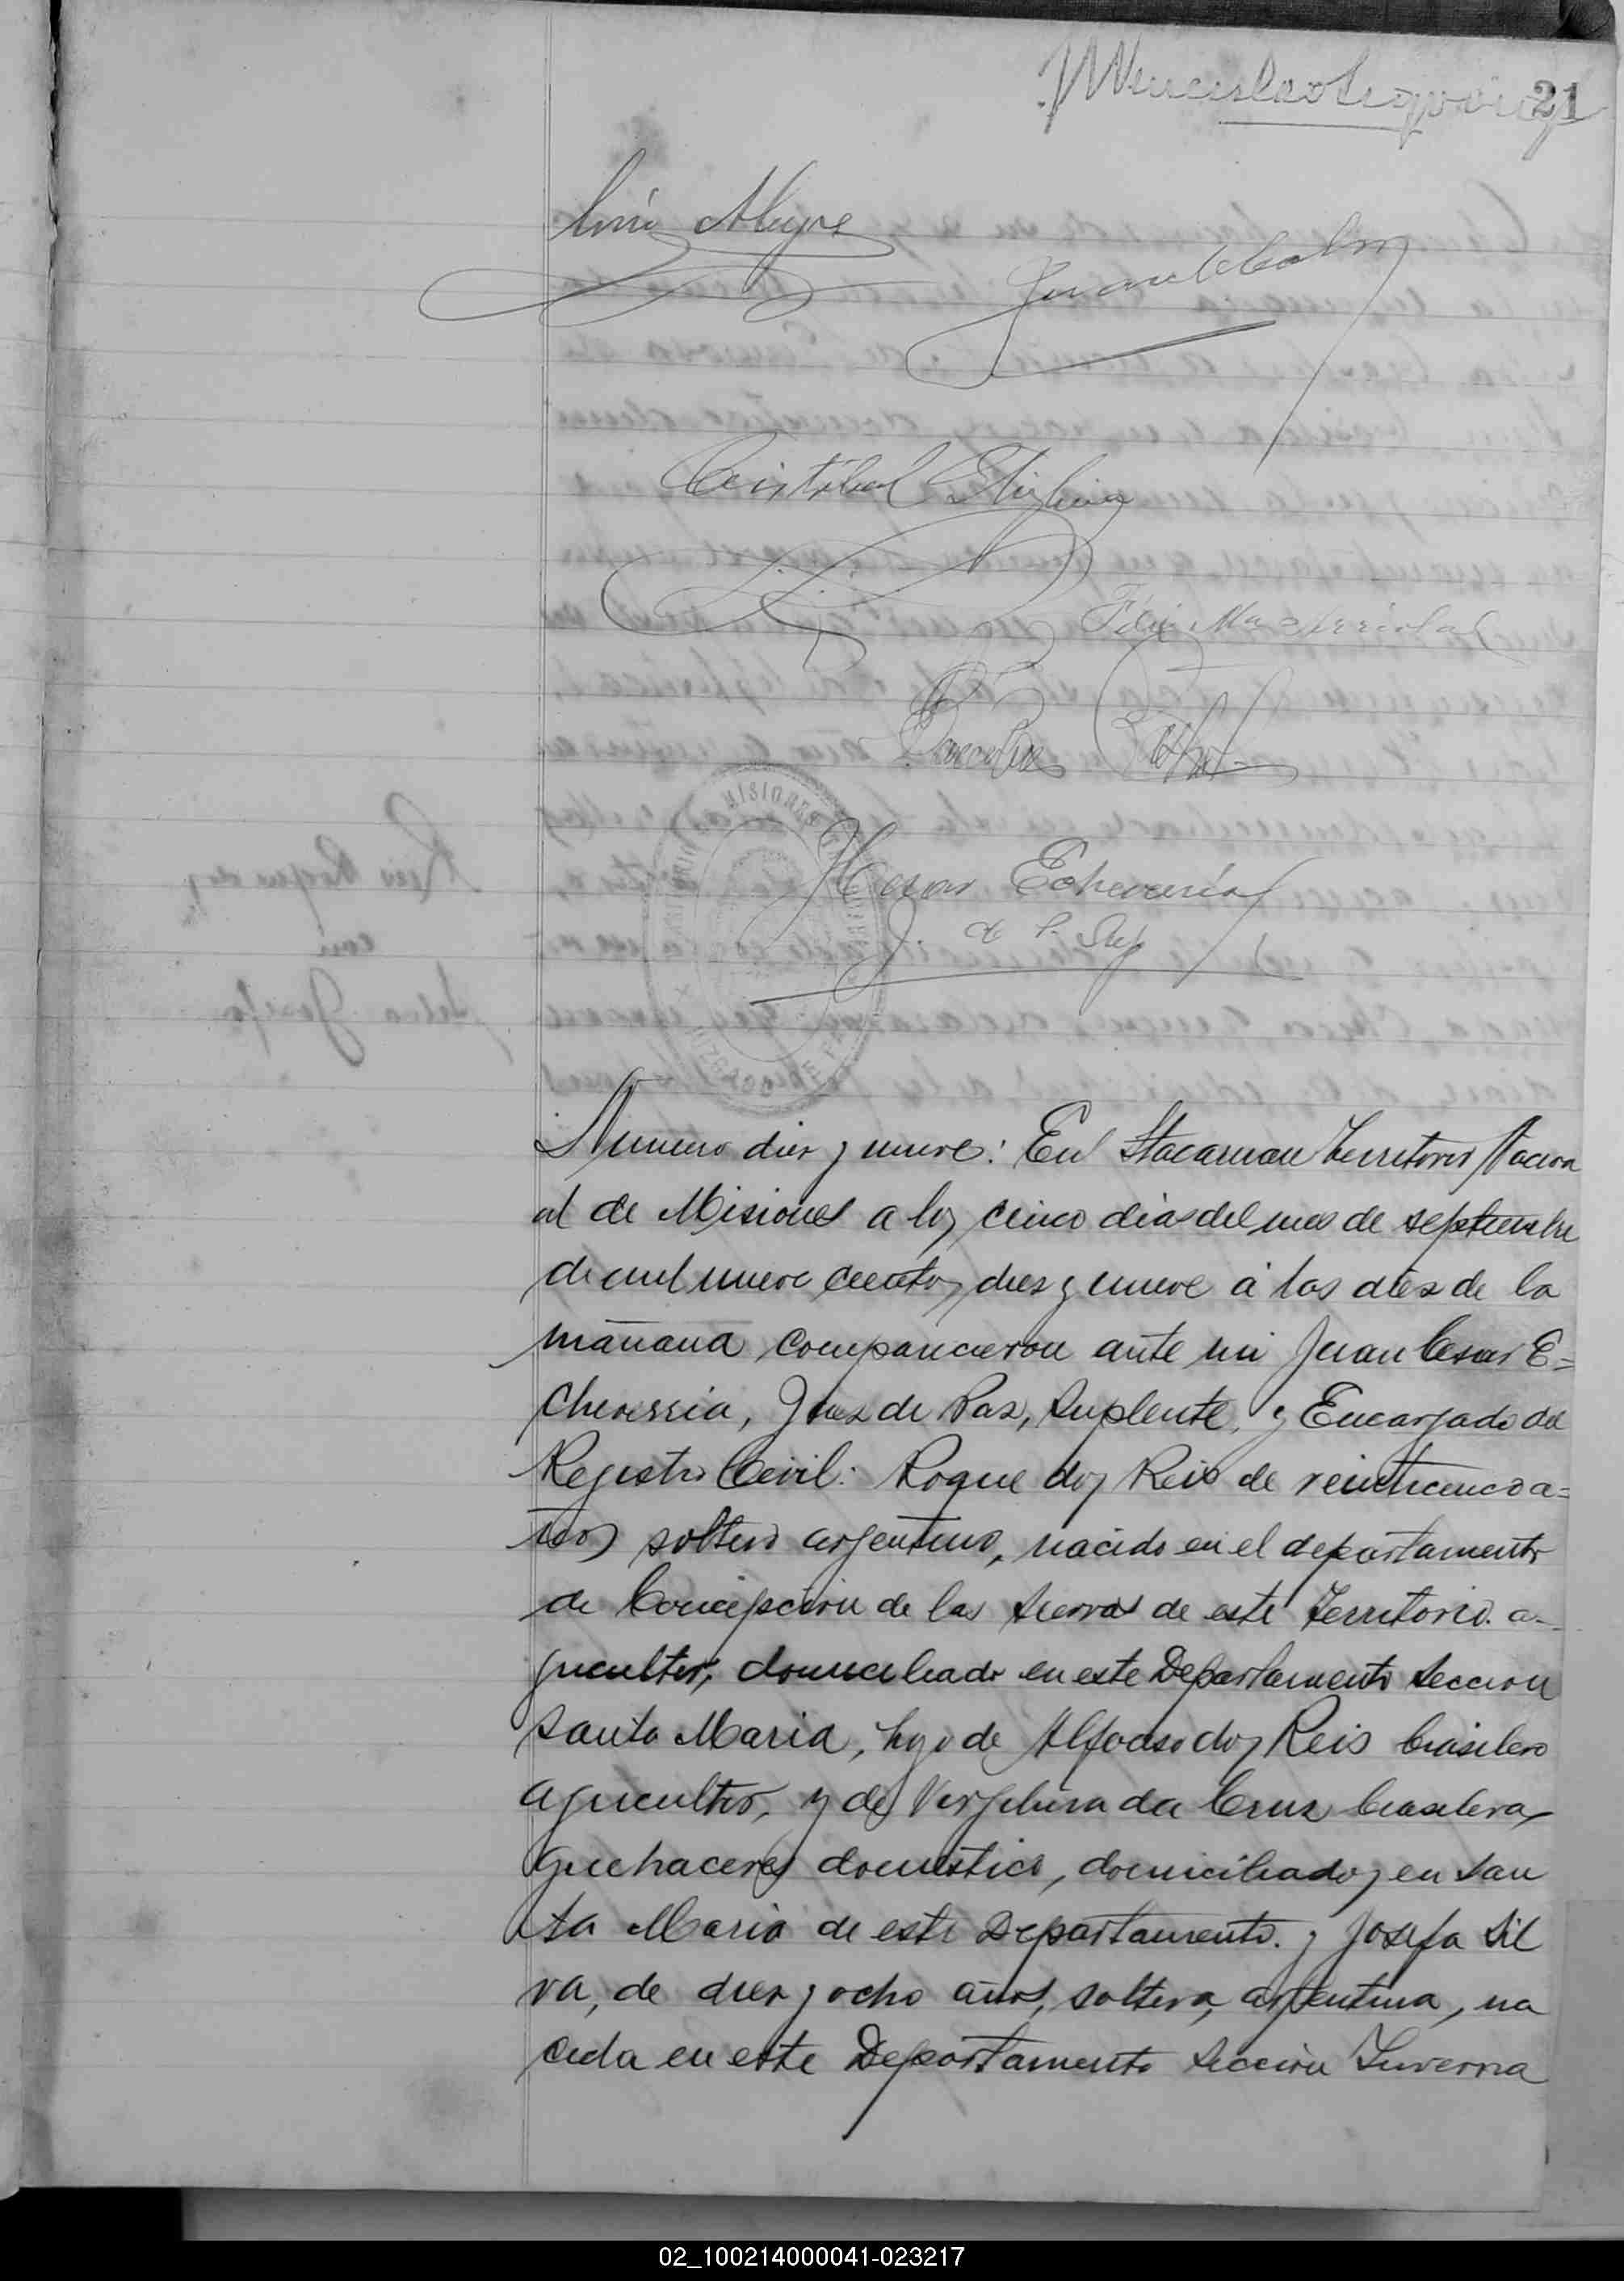 21
Wenceslao
Alegre
Juan
Cristóbal
Felix
TERRITORIO MISIONES
JUZGADO DE PAZ
J Cesar Echeverria
J. de P. Sup
Numero diez y nueve: En Itacaruare Territorio Nacion
al de Misiones a los cinco dias del mes de septiembre
de mil nueve cientos diez y nueve á las diez de la
mañana comparecieron ante mi Juan Cesar E=
cheverria, Juez de Paz, Suplente, y Encargado del
Registro Civil: Roque dos Reis de veinticinco a=
ños soltero argentino, nacido en el departamento
de Concepcion de las Sierras de este Territorio. a-
gricultor, domiciliado en este Departamento Seccion
Santa Maria, hijo de Alfonso dos Reis brasilero
agricultor, y de Vergelina da Cruz brasilera,
quehaceres domestico, domiciliados en San
ta Maria de este Departamento. y Josefa Sil
va, de diez y ocho años, soltera, argentina, na
cida en este Departamento Seccion Invernа
02_100214000041-023217